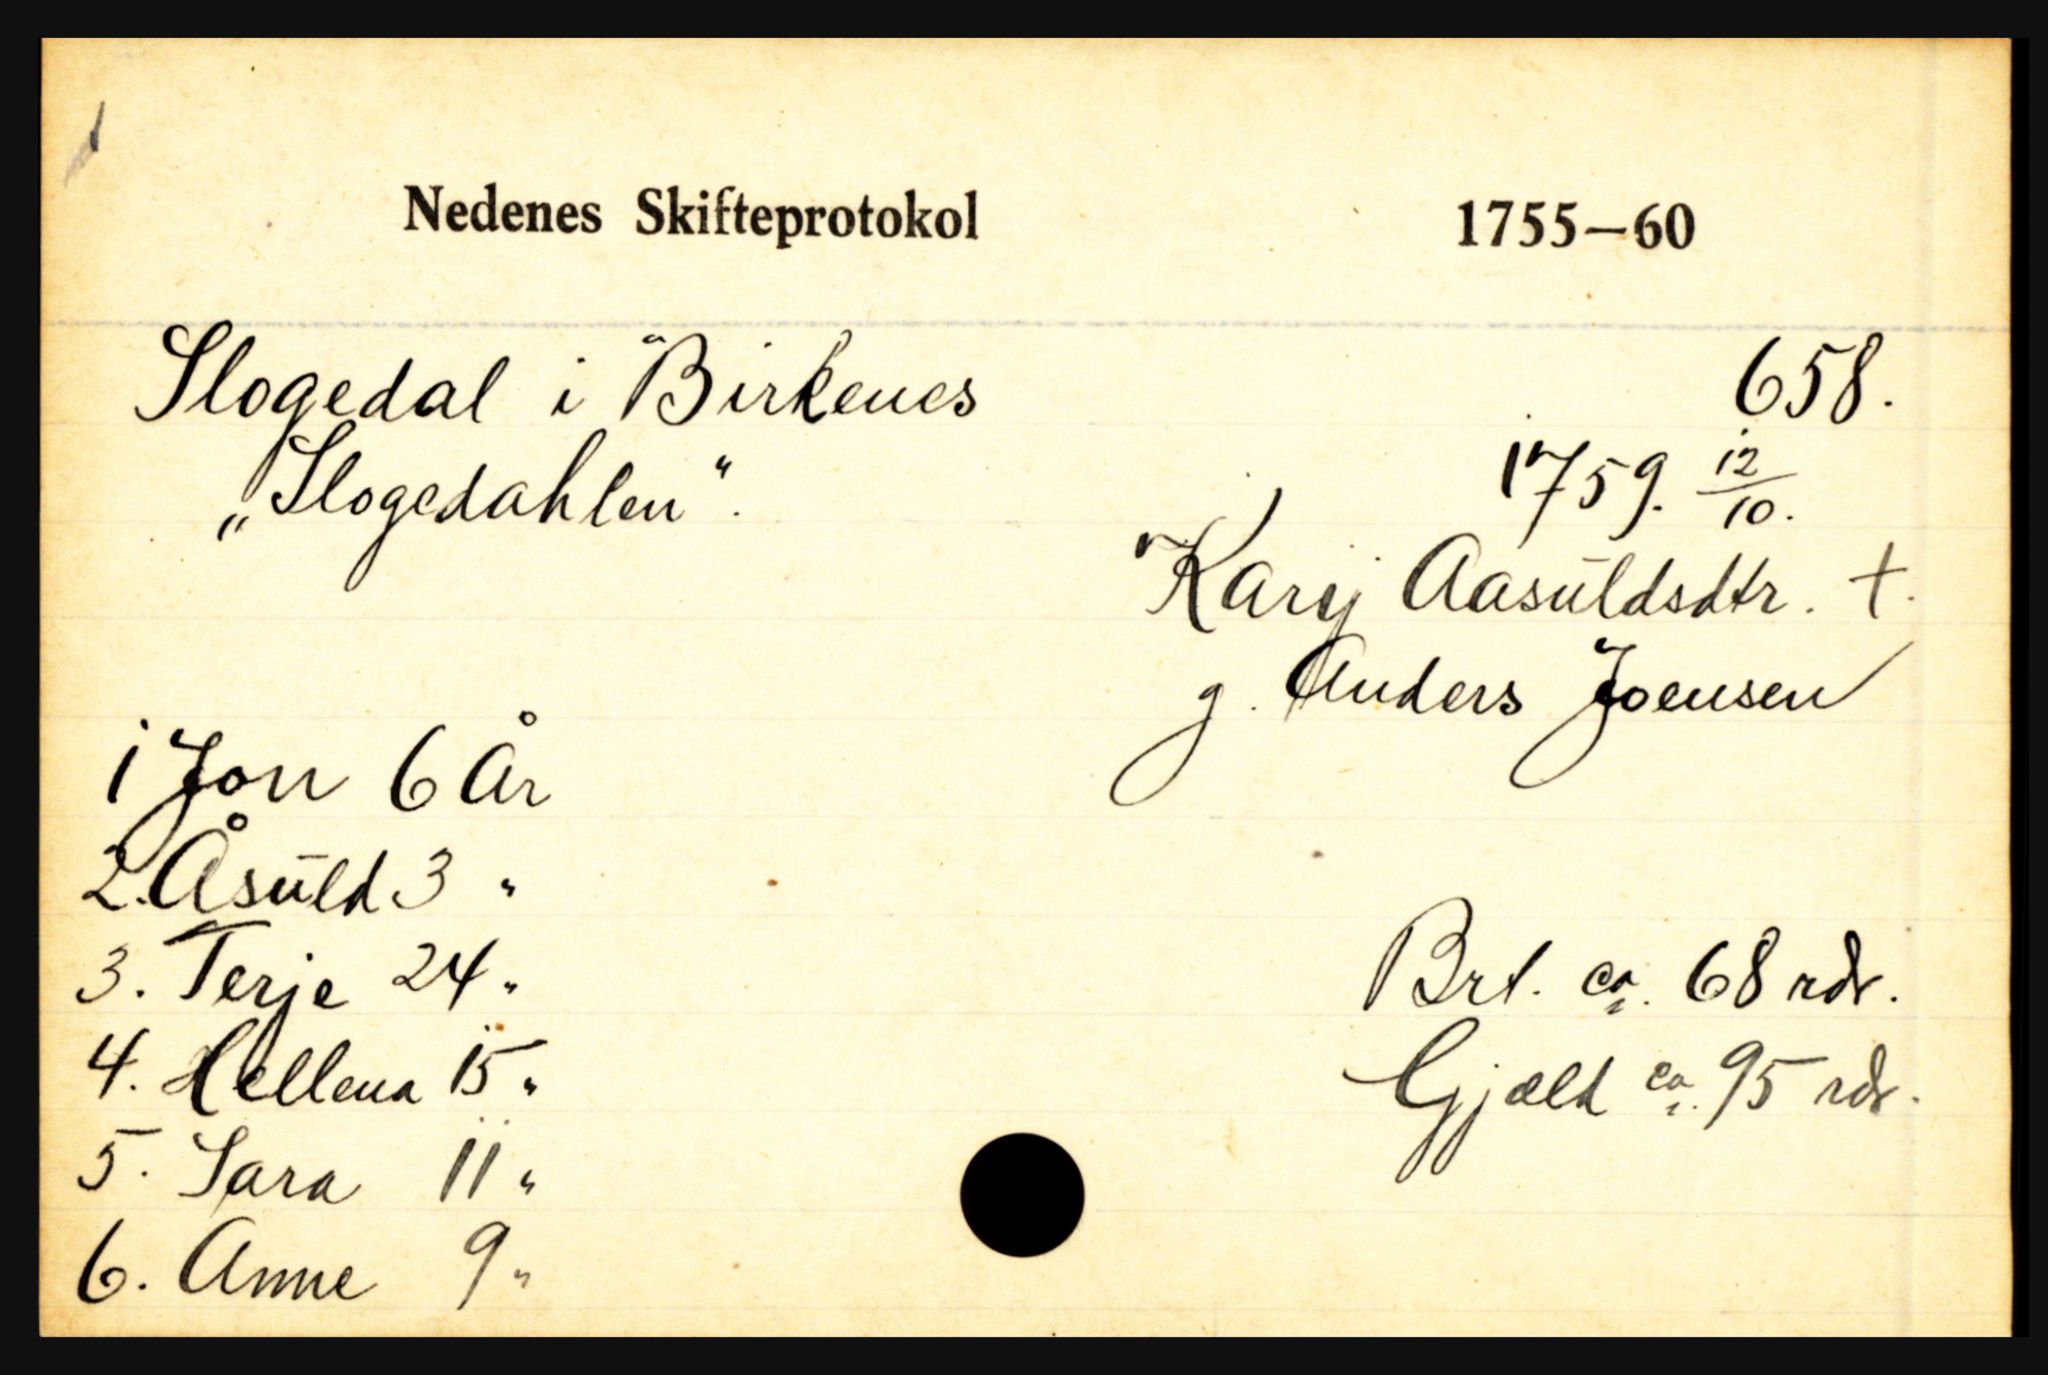 Nedenes Skifteprotokol 1755—60
Slogedal i Birkenes 658.
„Slogedahlen“. 1759. 12/10.
Karij Aasuldsdtr. †.
g. Anders Joensen
1 Jon 6 År
2. Åsuld 3 "
3. Terje 24 "
Brt. ca. 68 rdr.
4. Hellena 15 "
Gjæld ca. 95 rdr.
5. Sara 11 "
6. Anne 9 "